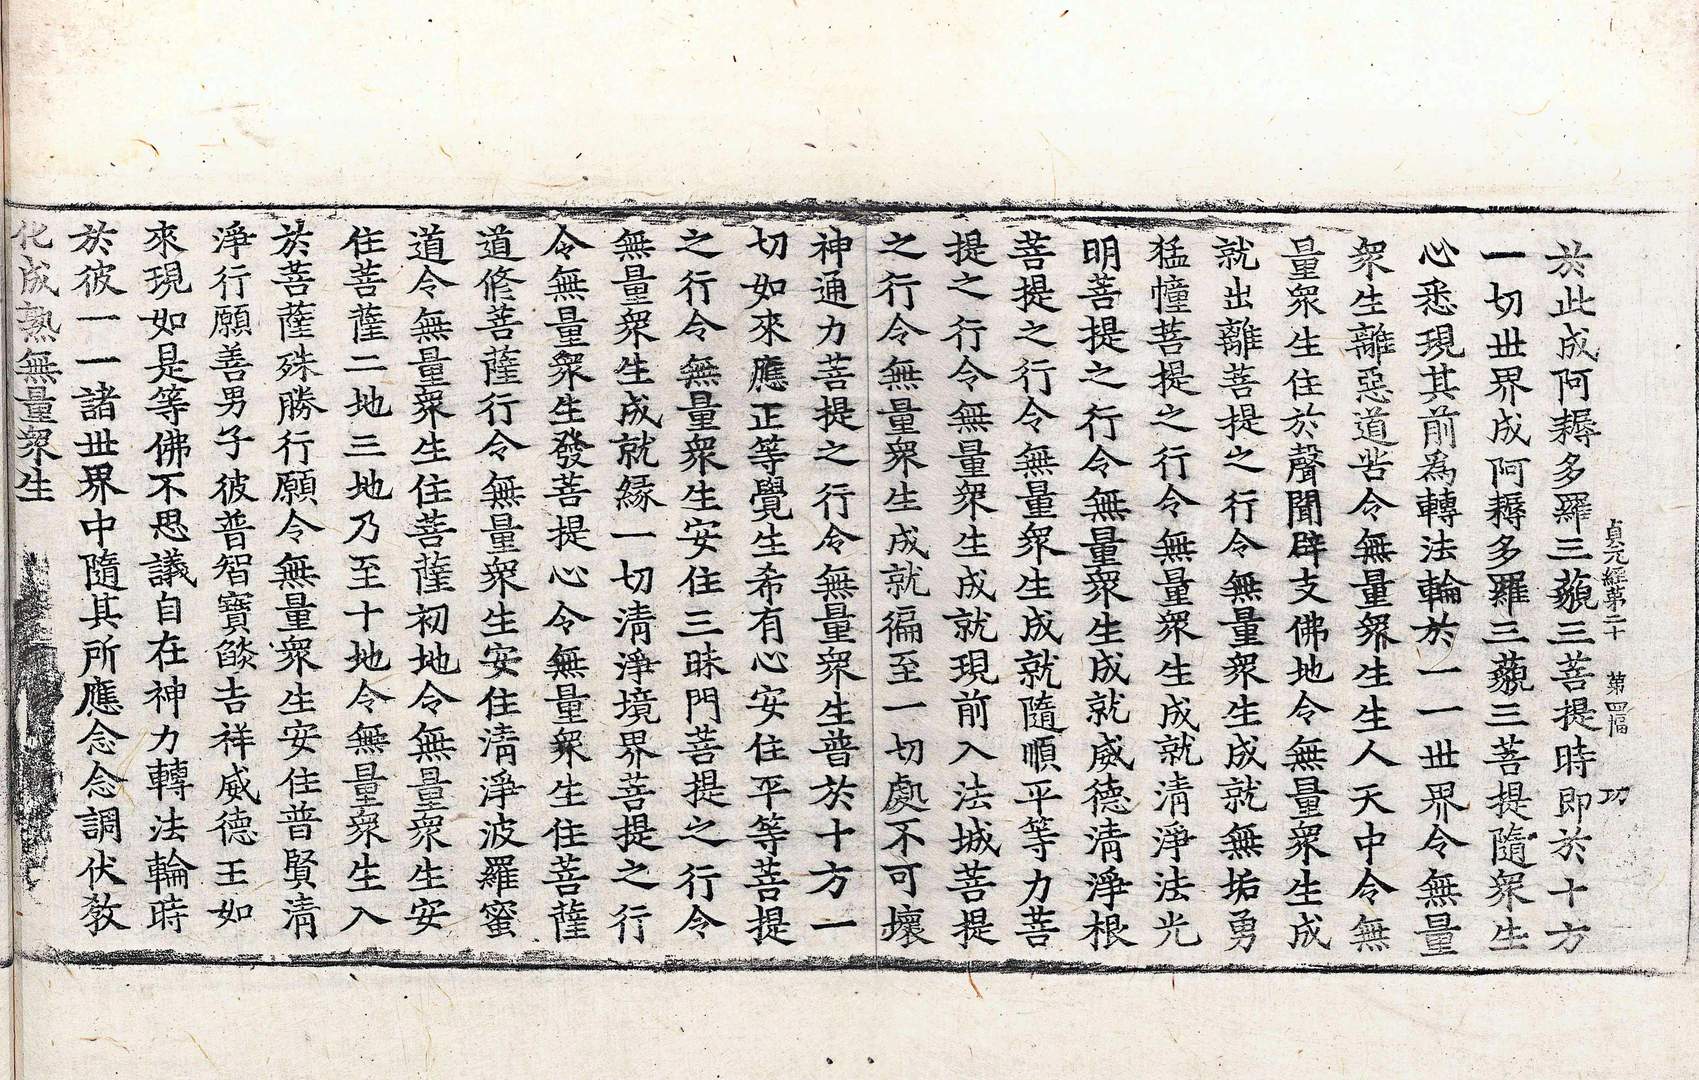 貞元經第二十　第四幅　功
於此成阿耨多羅三藐三菩提時即於十方
一切世界成阿耨多羅三藐三菩提隨衆生
心悉現其前爲轉法輪於一一世界令無量
衆生離惡道苦令無量衆生生人天中令無
量衆生住於聲聞辟支佛地令無量衆生成
就出離菩提之行令無量衆生成就無垢勇
猛幢菩提之行令無量衆生成就清淨法光
明菩提之行令無量衆生成就威德清淨根
菩提之行令無量衆生成就隨順平等力菩
提之行令無量衆生成就現前入法城菩提
之行令無量衆生成就徧至一切處不可壞
神通力菩提之行令無量衆生普於十方一
切如來應正等覺生希有心安住平等菩提
之行令無量衆生安住三昧門菩提之行令
無量衆生成就緣一切清淨境界菩提之行
令無量衆生發菩提心令無量衆生住菩薩
道修菩薩行令無量衆生安住清淨波羅蜜
道令無量衆生住菩薩初地令無量衆生安
住菩薩二地三地乃至十地令無量衆生入
於菩薩殊勝行願令無量衆生安住普賢清
淨行願善男子彼普智寶燄吉祥威德王如
來現如是等佛不思議自在神力轉法輪時
於彼一一諸世界中隨其所應念念調伏敎
化成熟無量衆生